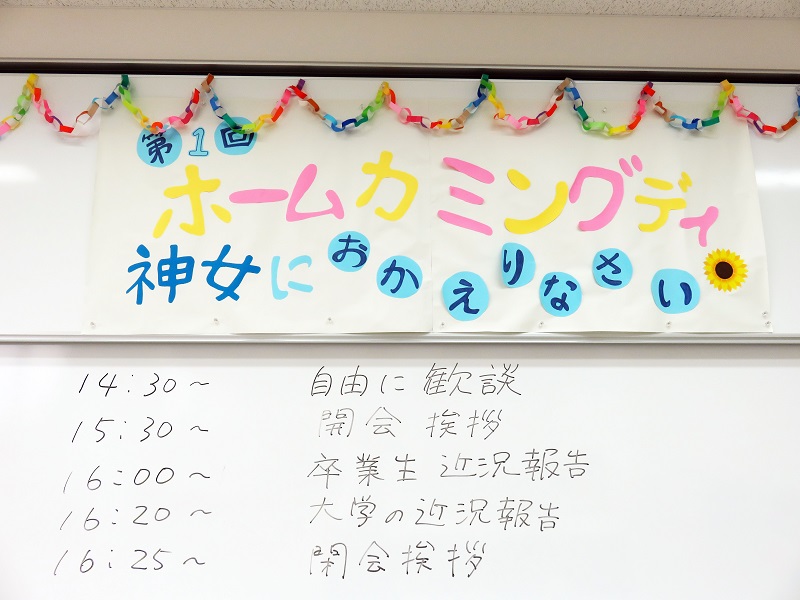 第1回
ホームカミングディ
神女におかえりなさい
14:30～ 自由に歓談
15:30～ 開会挨拶
16:00～ 卒業生 近況報告
16:20～ 大学の近況報告
16:25～ 閉会挨拶